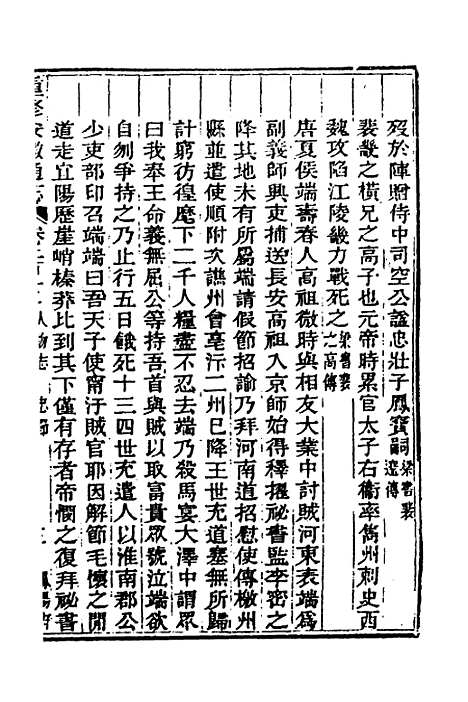 歿於陣贈侍中司空公諡忠壯子鳳寶嗣梁書裴邃傳
裴畿之橫兄之高子也元帝時累官太子右衞率雋州刺史西
魏攻陷江陵畿力戰死之梁書裴之高傳
唐夏侯端壽春人高祖微時與相友大業中討賊河東表端爲
副義師興吏捕送長安高祖入京師始得釋擢祕書監李密之
降其地未有所屬端請假節招諭乃拜河南道招慰使傳檄州
縣並遣使順附次譙州會亳汴二州已降王世充道塞無所歸
計窮彷徨麾下二千人糧盡不忍去端乃殺馬宴大澤中謂眾
曰我奉王命義無屈公等持吾首與賊以取富貴眾號泣端欲
自刎爭持之乃止行五日餓死十三四世充遣人以淮南郡公
少吏部印召端端曰吾天子使甯汙賊官耶因解節毛懷之間
道走宜陽歷崖峭榛莽比到其下僅有存者帝憫之復拜祕書
重修安徽通志 卷二百 人物志 忠節